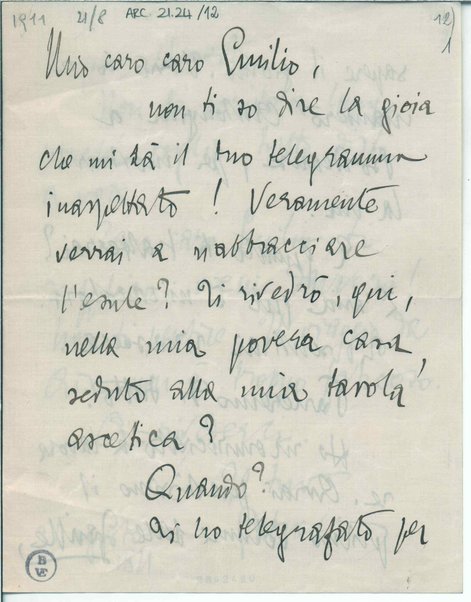 1911 21/8 ARC. 21.24/12 12/1
Mio caro caro Emilio,
non ti so dire la gioia
che mi dà il tuo telegramma
inaspettato! Veramente
verrai a riabbracciare
l'esule? Ti rivedrò, qui,
nella mia povera casa,
seduto alla mia tavola
ascetica?
Quando?
Ti ho telegrafato per
B
VE